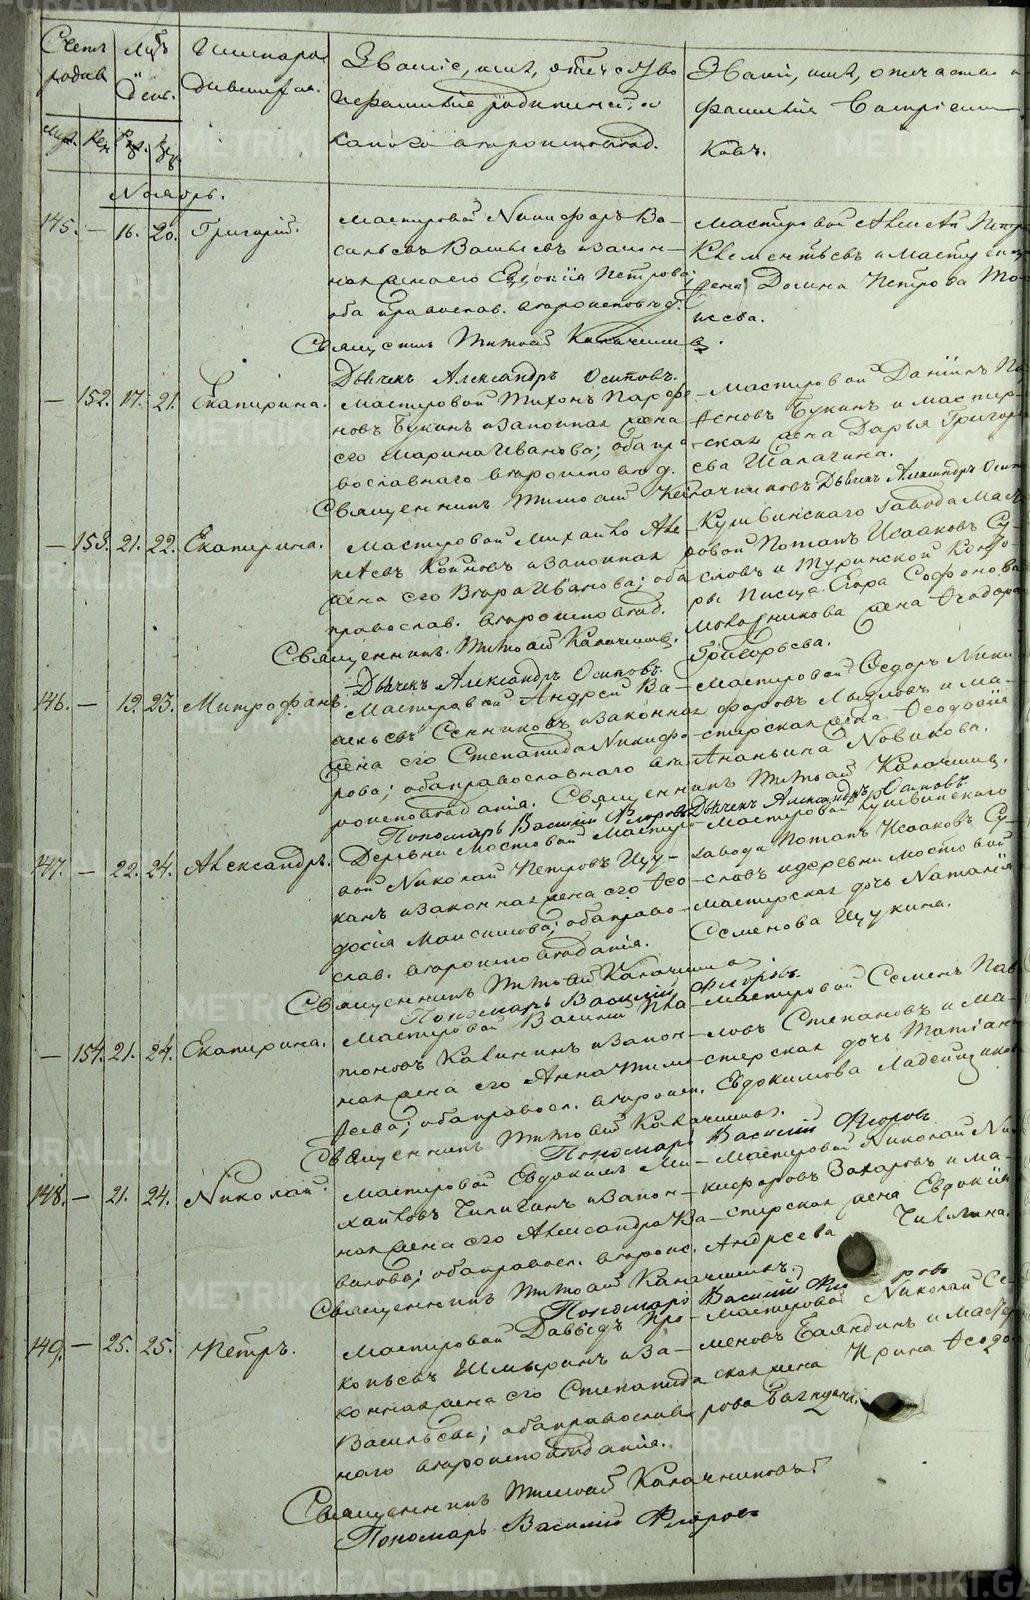 Счетъ родив
Мцъ и день.
Имена родившихся.
Званіе, имя, отечество
и фамилія родителей, и
какого вѣроисповѣд.
Званіе, имя, отечество и
фамилія Воспріемни
ковъ.
Муж. Жен. Рож. Кр.
Ноябрь.
145. — 16. 20. Григорій.
Мастеровой Никифоръ Ва-
сильевъ Васильевъ и закон-
ная жена его Евдокія Петрова;
оба православ. вѣроисповѣд.
Мастеровой Алексѣй Петр
Клементьевъ и мастерская
жена Петрова
Священникъ Тимофей Калачниковъ.
Дьячекъ Александръ Осиповъ.
— 152. 17. 21. Екатирина.
Мастеровой Тихонъ Парфе
новъ Букинъ и законная жена
его Марина Иванова; оба пра
вославнаго вѣроисповѣд.
Мастеровой Даніилъ Па
феновъ Букинъ и мастер-
ская жена Дарья Григорь
ева Шалагина.
Священникъ Тимофей Калачниковъ Дьячекъ Александръ Осип
— 153. 21. 22. Екатирина.
Мастеровой Михайло Але
ксѣевъ Коиновъ и законная
жена его Вѣра Иванова; оба
православ. вѣроисповѣд.
Кушвинскаго завода Мас
ровой Потапъ Исааковъ Су-
словъ и Туринской Конто-
ры писца Егора Софонова
жена Ѳеодора
Григорьева.
Священникъ. Тимофей Калачников.
Дьячекъ Александръ Осиповъ.
146. — 19. 23. Митрофанъ.
Мастеровой Андрей Ва-
сильевъ Сенниковъ и законная
жена его Степанида Никифо-
рова; оба православнаго вѣ
роисповѣданія.
Мастеровой Ѳедоръ Ники
форовъ и ма-
стерская жена Ѳеодосія
Ананьина Новикова.
Священникъ Тимофей Калачников.
Пономарь Василій Флоровъ Дьячекъ Александръ Осиповъ
147. — 22. 24. Александръ.
Деревни Мостовой Мастеро-
вой Николай Петровъ Щу-
кинъ и законная жена его Ѳео-
досія Максимова; оба право-
слав. вѣроисповѣданія.
Мастеровой Кушвинскаго
завода Потапъ Исааковъ Су-
словъ и деревни Мостовой
мастерская дочь Наталія
Семенова Щукина.
Священникъ Тимофей Калачников
Пономарь Василій Флоровъ.
— 154. 21. 24. Екатирина.
Мастеровой Василій Пла-
тоновъ Калининъ и закон-
ная жена его Анна Тимо-
ѳеева; оба правосл. вѣроисп.
Мастеровой Семенъ Пав
ловъ Степановъ и ма-
стерская дочь Татіан
Евдокимова Ладейщиков
Священникъ Тимофей Калачниковъ.
Пономарь Василій Флоровъ
148. — 21. 24. Николай.
Мастеровой Евдокимъ Ми-
хайловъ Чилигинъ и закон-
ная жена его Александра Ва-
вилова; оба правосл. вѣроис.
Мастеровой Николай Ни
кифоровъ Захаровъ и ма-
стерская жена Евдокія
Андреева
Священникъ Тимофей Калачниковъ.
Пономарь Василій Фло ровъ
149. — 25. 25. Петръ.
Мастеровой Давыдъ Про-
копьевъ Шмыринъ и за-
конная жена его Степанида
Васильева; оба православ-
наго вѣроисповѣданія.
Мастеровой Николай Се-
меновъ Баяндинъ и мастер
ская жена Ирина Ѳедо
рова
Священникъ Тимофей Калачниковъ
Пономарь Василій Флоровъ
METRIKI.GASO-URAL.RU